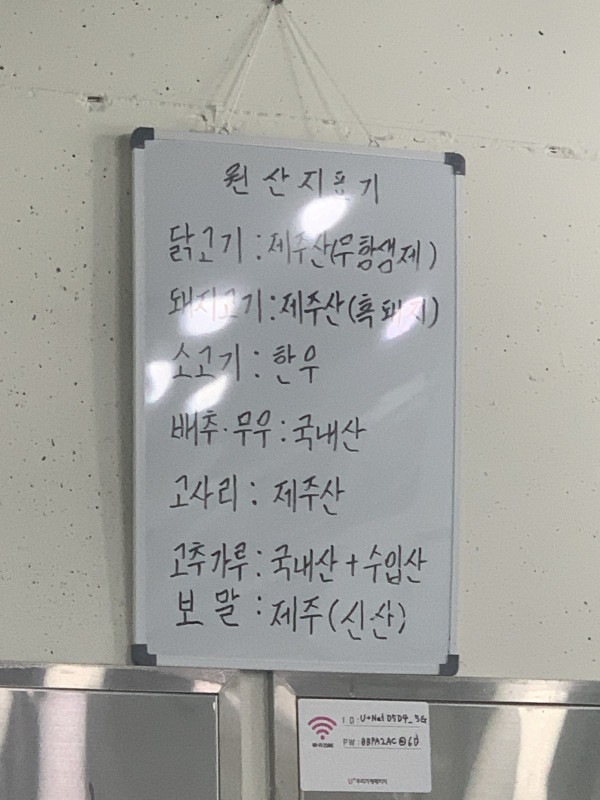 원산지표기
닭고기 : 제주산(무항생제)
돼지고기 : 제주산(흑돼지)
소고기 : 한우
배추·무우 : 국내산
고사리 : 제주산
고추가루 : 국내산 + 수입산
보말 : 제주(신산)
WI-FI ZONE
ID : U+Net D5D9_5G
PW :